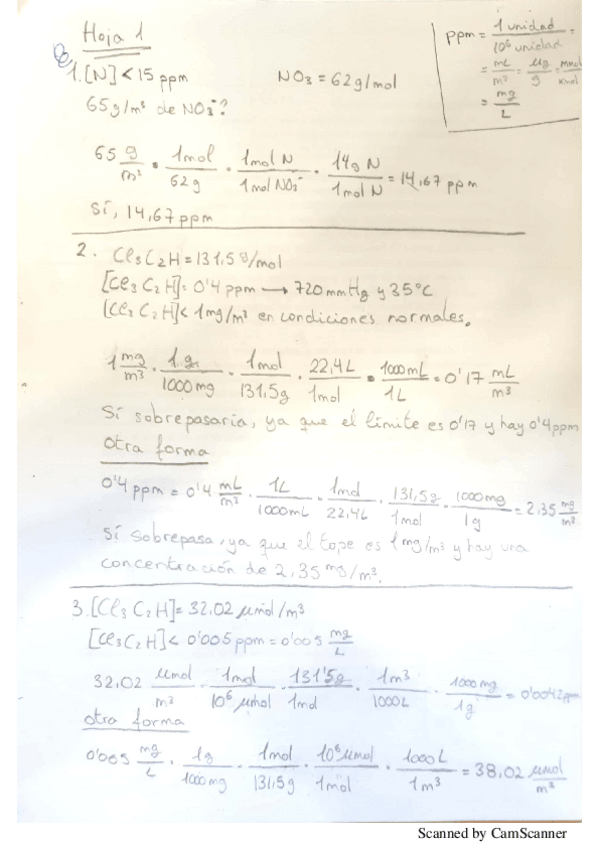 Hoja 1
ppm = 1 unidad / 10⁶ unidad =
= mL/m³ = μg/g = mmol/kmol
= mg/L
1. [N] < 15 ppm
NO₃ = 62 g/mol
65 g/m³ de NO₃⁻?
65 g/m³ · 1mol/62g · 1mol N/1mol NO₃⁻ · 14g N/1mol N = 14,67 ppm
Sí, 14,67 ppm
2. Cl₃C₂H = 131,5 g/mol
[Cl₃C₂H] = 0'4 ppm → 720 mmHg y 35°C
[Cl₃C₂H] < 1mg/m³ en condiciones normales.
1 mg/m³ · 1g/1000mg · 1mol/131,5g · 22,4L/1mol · 1000mL/1L = 0'17 mL/m³
Sí sobrepasaría, ya que el límite es 0'17 y hay 0'4ppm
Otra forma
0'4 ppm = 0'4 mL/m³ · 1L/1000mL · 1mol/22,4L · 131,5g/1mol · 1000mg/1g = 2,35 mg/m³
Sí sobrepasa, ya que el tope es 1mg/m³ y hay una
concentración de 2,35 mg/m³.
3. [Cl₃C₂H] = 32,02 μmol/m³
[Cl₃C₂H] < 0'005 ppm = 0'005 mg/L
32,02 μmol/m³ · 1mol/10⁶ μmol · 131'5g/1mol · 1m³/1000L · 1000mg/1g = 0'0042ppm
otra forma
0'005 mg/L · 1g/1000mg · 1mol/131,5g · 10⁶μmol/1mol · 1000L/1m³ = 38,02 μmol/m³
Scanned by CamScanner